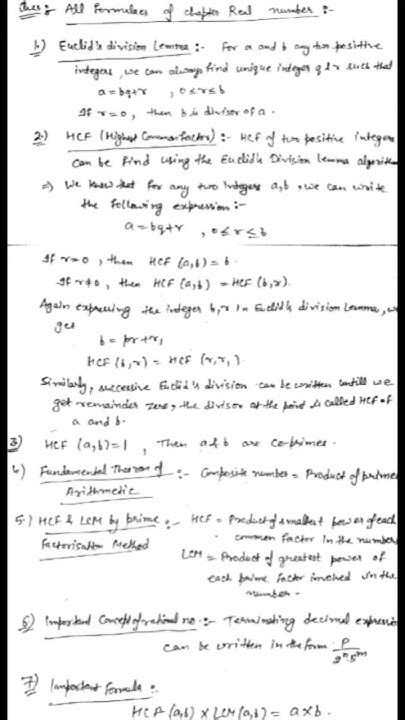 All Formulaes of chapter Real number :-
1.) Euclid's division Lemma :- For a and b any two positive
integers, we can always find unique integer q & r such that
a = bq+r , 0 ≤ r ≤ b
If r=0, then b is divisor of a.
2.) HCF (Highest Common factor) :- HCF of two positive integers
can be find using the Euclid's Division lemma algorithm
⇒ We know that for any two Integers a,b, we can write
the following expression :-
a = bq+r , 0 ≤ r ≤ b
If r=0 , then HCF (a,b) = b.
If r≠0 , then HCF (a,b) = HCF (b,r).
Again expressing the integer b,r in Euclid's division Lemma, we
get
b = pr+r₁
HCF (b,r) = HCF (r,r₁).
Similarly, successive Euclid's division can be written untill we
get remainder zero, the divisor at the point is called HCF of
a and b.
3) HCF (a,b)=1 , Then a & b are co-primes.
4) Fundamental Theorem of :- Composite number = Product of primes
Arithmetic
5.) HCF & LCM by prime :- HCF = Product of smallest power of each
Factorisation Method common factor in the numbers
LCM = Product of greatest power of
each prime factor involved in the
number -
6) Important Concept of rational no. :- Terminating decimal expression
can be written in the form P/2ⁿ5ᵐ
7) Important formula :-
HCF (a,b) × LCM (a,b) = a × b.